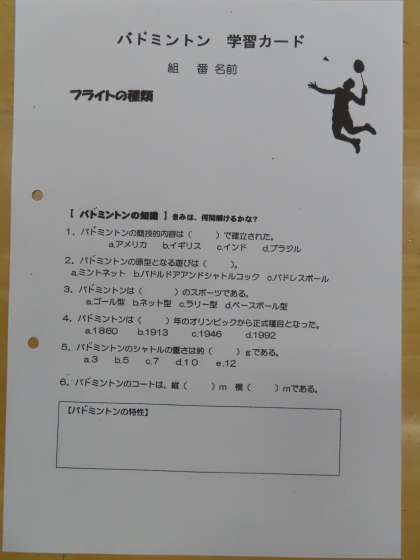 バドミントン 学習カード
組 番 名前
フライトの種類
【 バドミントンの知識 】 きみは、何問解けるかな？
1．バドミントンの競技的内容は（ ）で確立された。
a.アメリカ b.イギリス c.インド d.ブラジル
2．バドミントンの原型となる遊びは（ ）。
a.ミントネット b.バドルドアアンドシャトルコック c.バドレスポール
3．バドミントンは（ ）のスポーツである。
a.ゴール型 b.ネット型 c.ラリー型 d.ベースボール型
4．バドミントンは（ ）年のオリンピックから正式種目となった。
a.1860 b.1913 c.1946 d.1992
5．バドミントンのシャトルの重さは約（ ）gである。
a.3 b.5 c.7 d.10 e.12
6．バドミントンのコートは、縦（ ）m 横（ ）mである。
【バドミントンの特性】